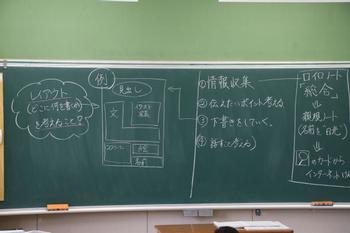 レイアウト
(どこに何を書くのか
を考えること?)
例
見出し
文
イラスト
写真
感想
名前
①情報収集
②伝えたいポイント考える
③下書きをしていく。
④
ロイロノート
「総合」
↓
新規ノート
(名前を「日光」)
↓
のカードから
インターネット